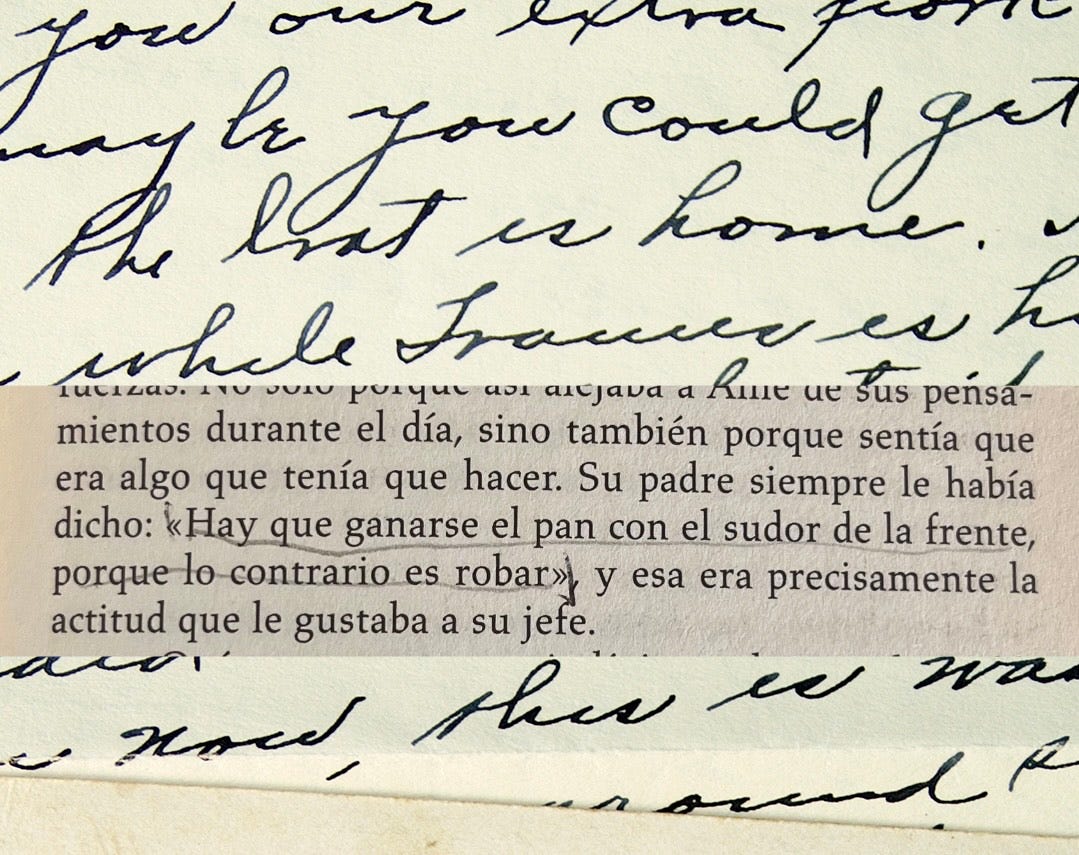 you our extra
may be you could get
the boat is home.
while Frances is
fuerzas. No solo porque así alejaba a Aine de sus pensa-
mientos durante el día, sino también porque sentía que
era algo que tenía que hacer. Su padre siempre le había
dicho: «Hay que ganarse el pan con el sudor de la frente,
porque lo contrario es robar», y esa era precisamente la
actitud que le gustaba a su jefe.
this is was
now,
around